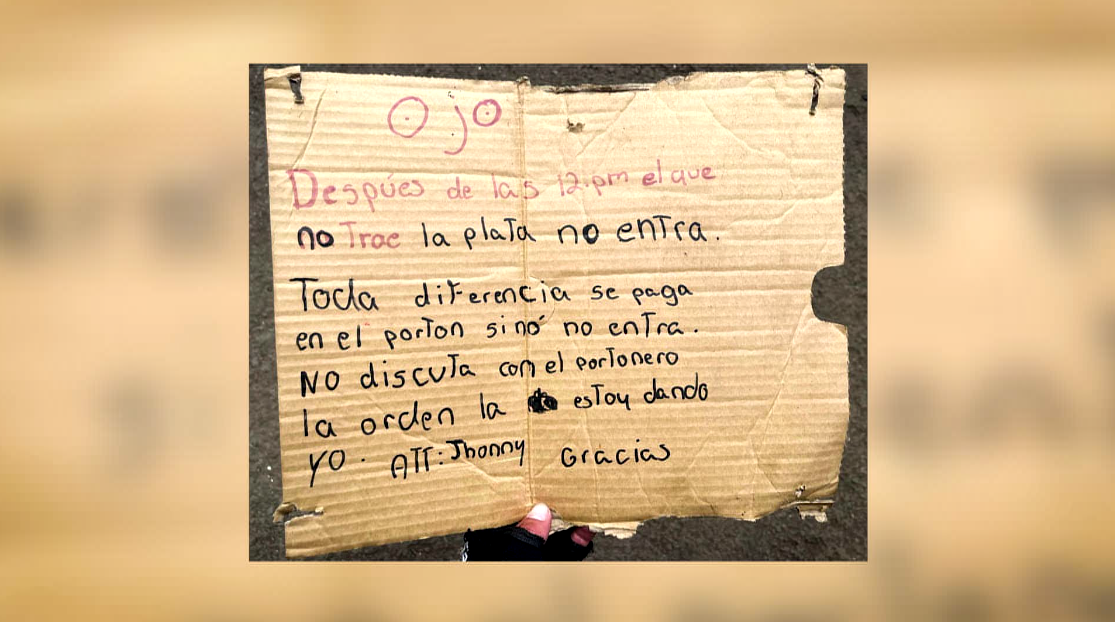 Ojo
Despúes de las 12.pm el que
no Trae la plaTa no enTra.
Toda diferencia se paga
en el porTon sinó no enTra.
NO discuTa con el porTonero
la orden la esToy dando
yo. ATT: Jhonny Gracias